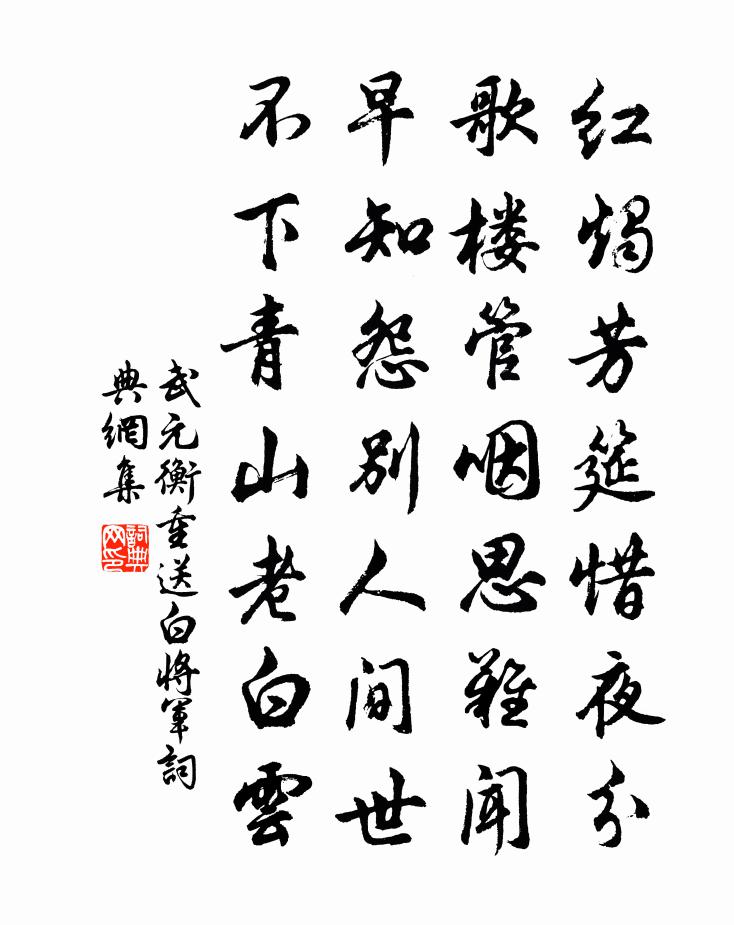 红烛芳筵惜夜分
歌楼管咽思难闻
早知怨别人间世
不下青山老白雲
武元衡重送白将軍詞
典網集
詞典
网印